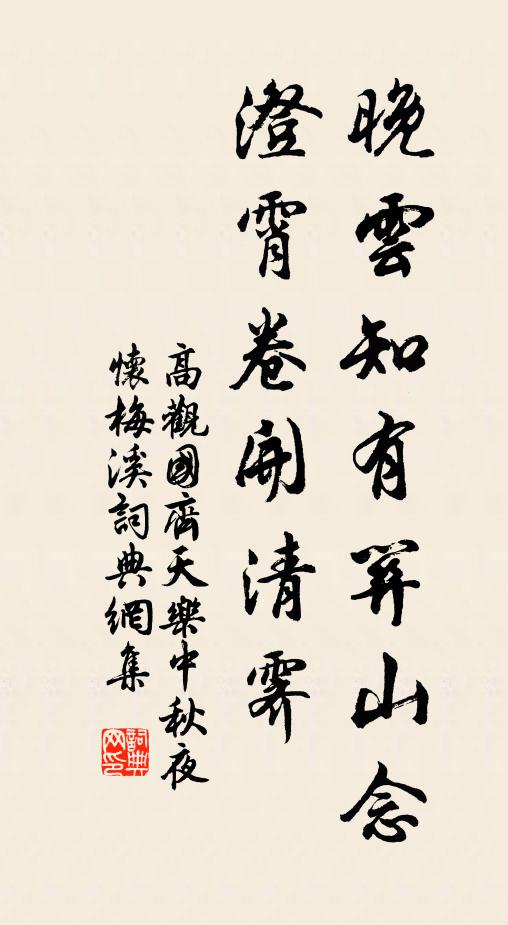 晚雲知有關山念
澄霄卷開清霽
高觀國齊天樂中秋夜
懷梅溪詞典網集
詞典
网印